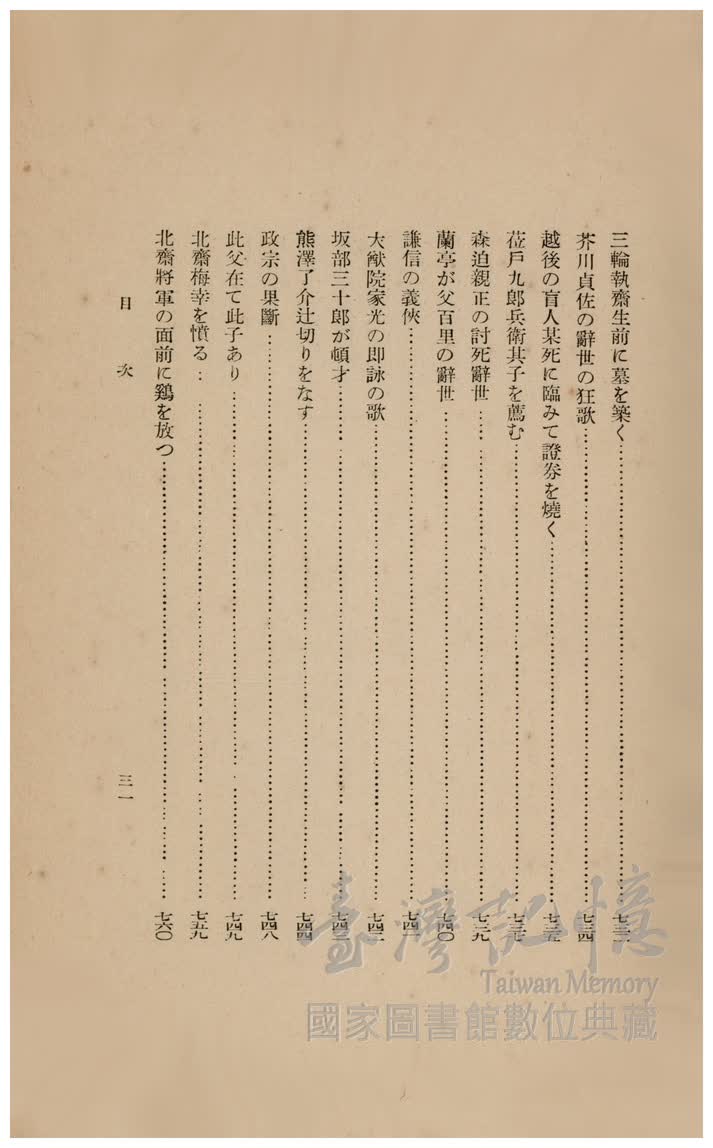 三輪執齋生前に墓を築く……七三三
芥川貞佐の辭世の狂歌……七三四
越後の盲人某死に臨みて證券を燒く……七三五
莅戶九郎兵衛其子を薦む……七三七
森迫親正の討死辭世……七三九
蘭亭が父百里の辭世……七四〇
謙信の義俠……七四一
大猷院家光の即詠の歌……七四二
坂部三十郎が頓才……七四三
熊澤了介辻切りをなす……七四四
政宗の果斷……七四八
此父在て此子あり……七四九
北齋梅幸を憤る……七五九
北齋將軍の面前に鷄を放つ……七六〇
目次
三一
臺灣記憶
Taiwan Memory
國家圖書館數位典藏